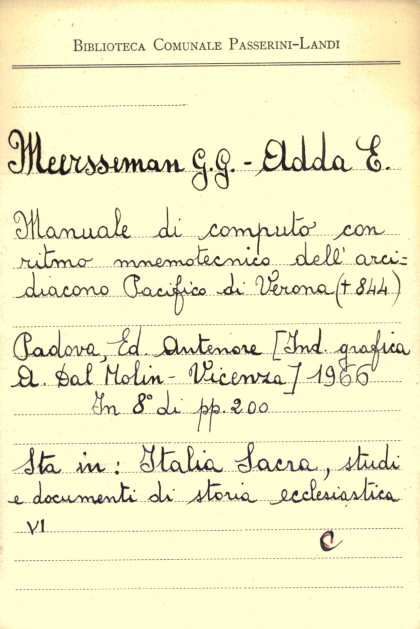 BIBLIOTECA COMUNALE PASSERINI-LANDI
Meersseman G.G. - Adda E.
Manuale di computo con
ritmo mnemotecnico dell'arci-
diacono Pacifico di Verona (+ 844)
Padova, Ed. Antenore [Ind. grafica
A. Dal Molin - Vicenza] 1966
In 8° di pp. 200
Sta in: Italia Sacra, studi
e documenti di storia ecclesiastica
VI
C